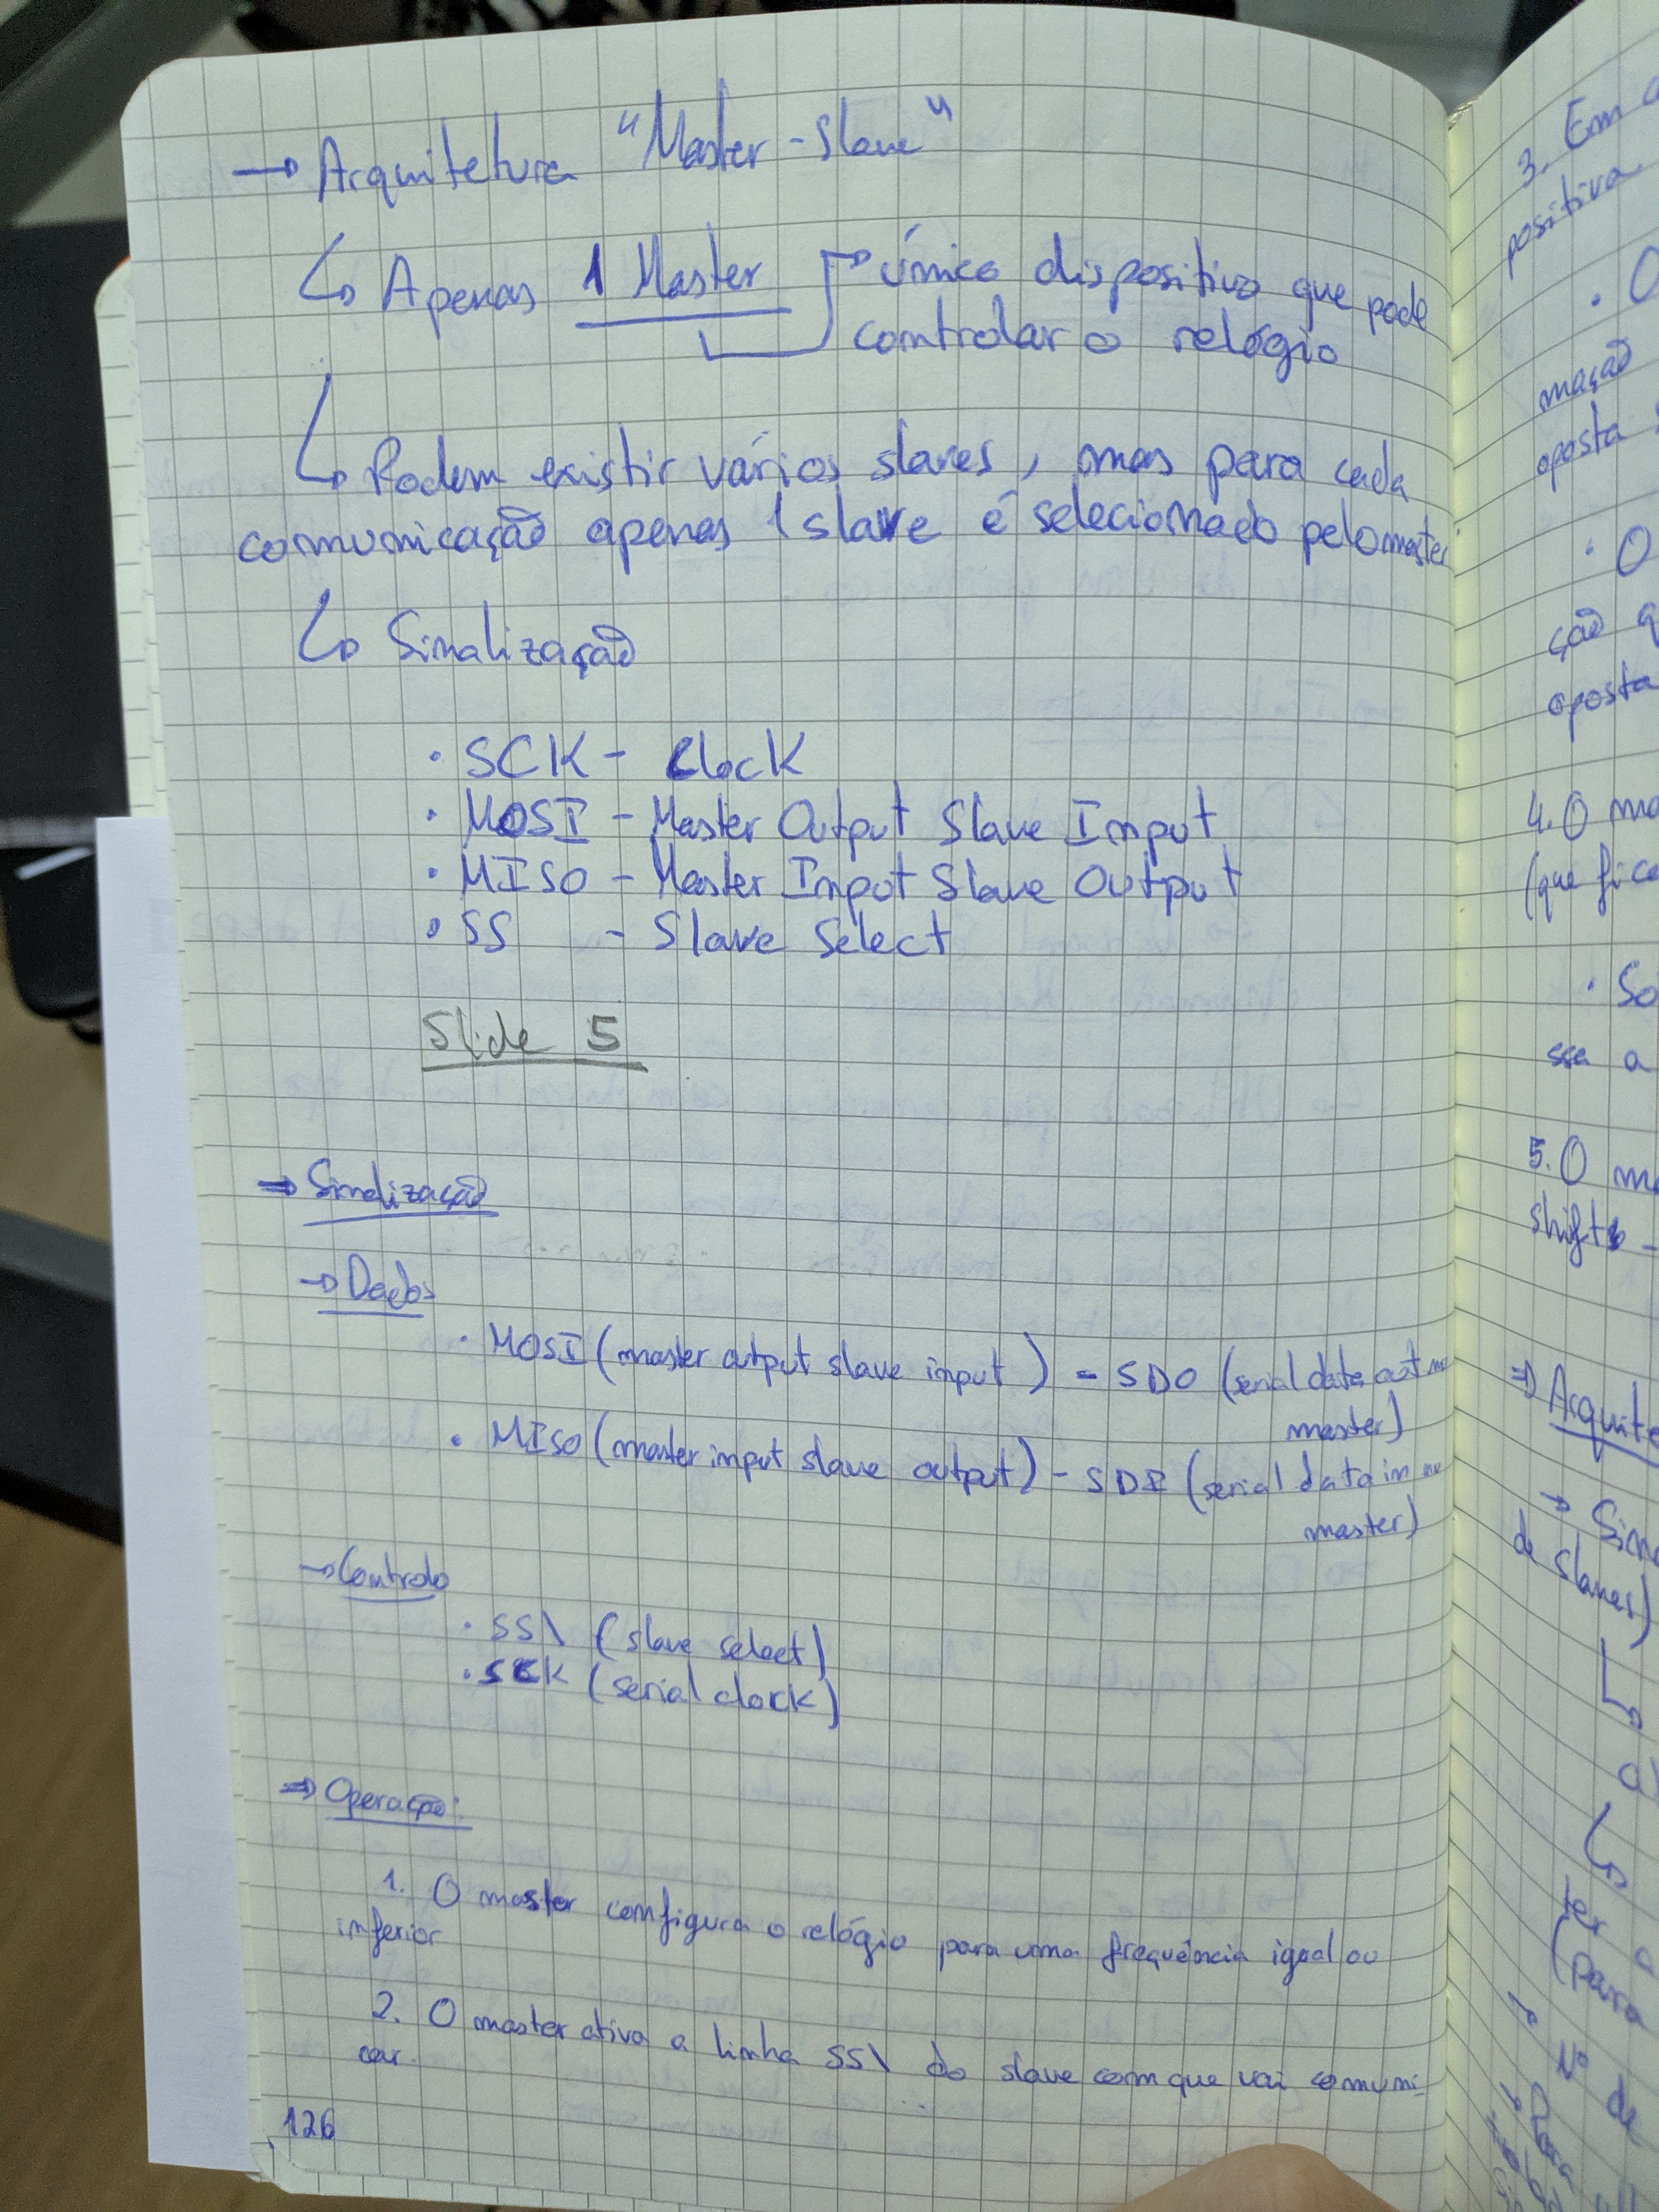 → Arquitetura "Master-Slave"
↳ Apenas 1 Master → único dispositivo que pode
controlar o relógio
↳ Podem existir vários slaves, mas para cada
comunicação apenas 1 slave é selecionado pelo master
↳ Sinalização
· SCK - Clock
· MOSI - Master Output Slave Input
· MISO - Master Input Slave Output
· SS - Slave Select
Slide 5
⇒ Sinalização
→ Dados
· MOSI (master output slave input) - SDO (serial data out no
master)
· MISO (master input slave output) - SDI (serial data in no
master)
→ Controlo
· SS\ (slave select)
· SCK (serial clock)
⇒ Operação:
1. O master configura o relógio para uma frequência igual ou
inferior
2. O master ativa a linha SS\ do slave com que vai comuni-
car.
126
3. Em
positiva
· O
mação
oposta
· O
ção q
oposta
4. O
(que
· So
sse a
5. O
shift -
⇒ Arquite
→
de slaves)
↳
a
↳
ter
(para
→ Nº de
→ Para